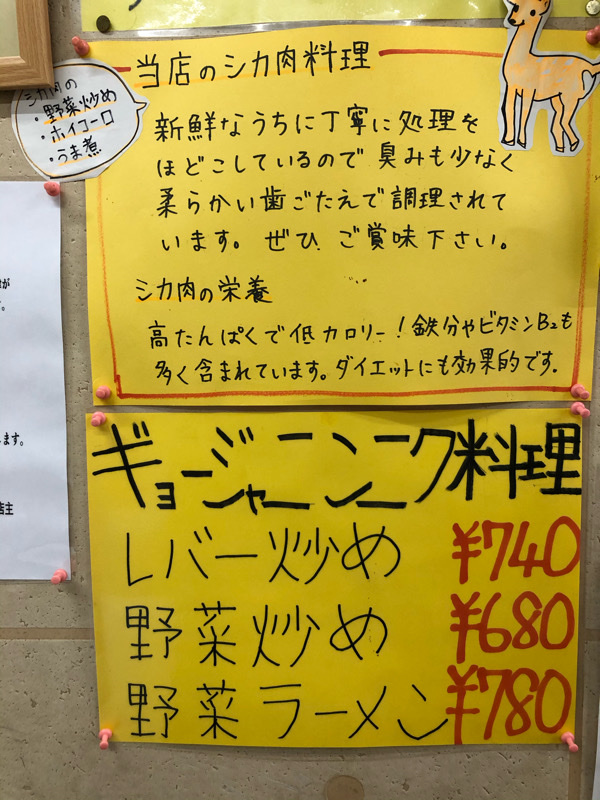 当店のシカ肉料理
シカ肉の
・野菜炒め
・ホイコーロ
・うま煮
新鮮なうちに丁寧に処理を
ほどこしているので臭みも少なく
柔らかい歯ごたえで調理されて
います。ぜひご賞味下さい。
シカ肉の栄養
高たんぱくで低カロリー！鉄分やビタミンB₂も
多く含まれています。ダイエットにも効果的です.
ギョージャニンニク料理
レバー炒め ¥740
野菜炒め ¥680
野菜ラーメン ¥780
が
。
ます。
店主